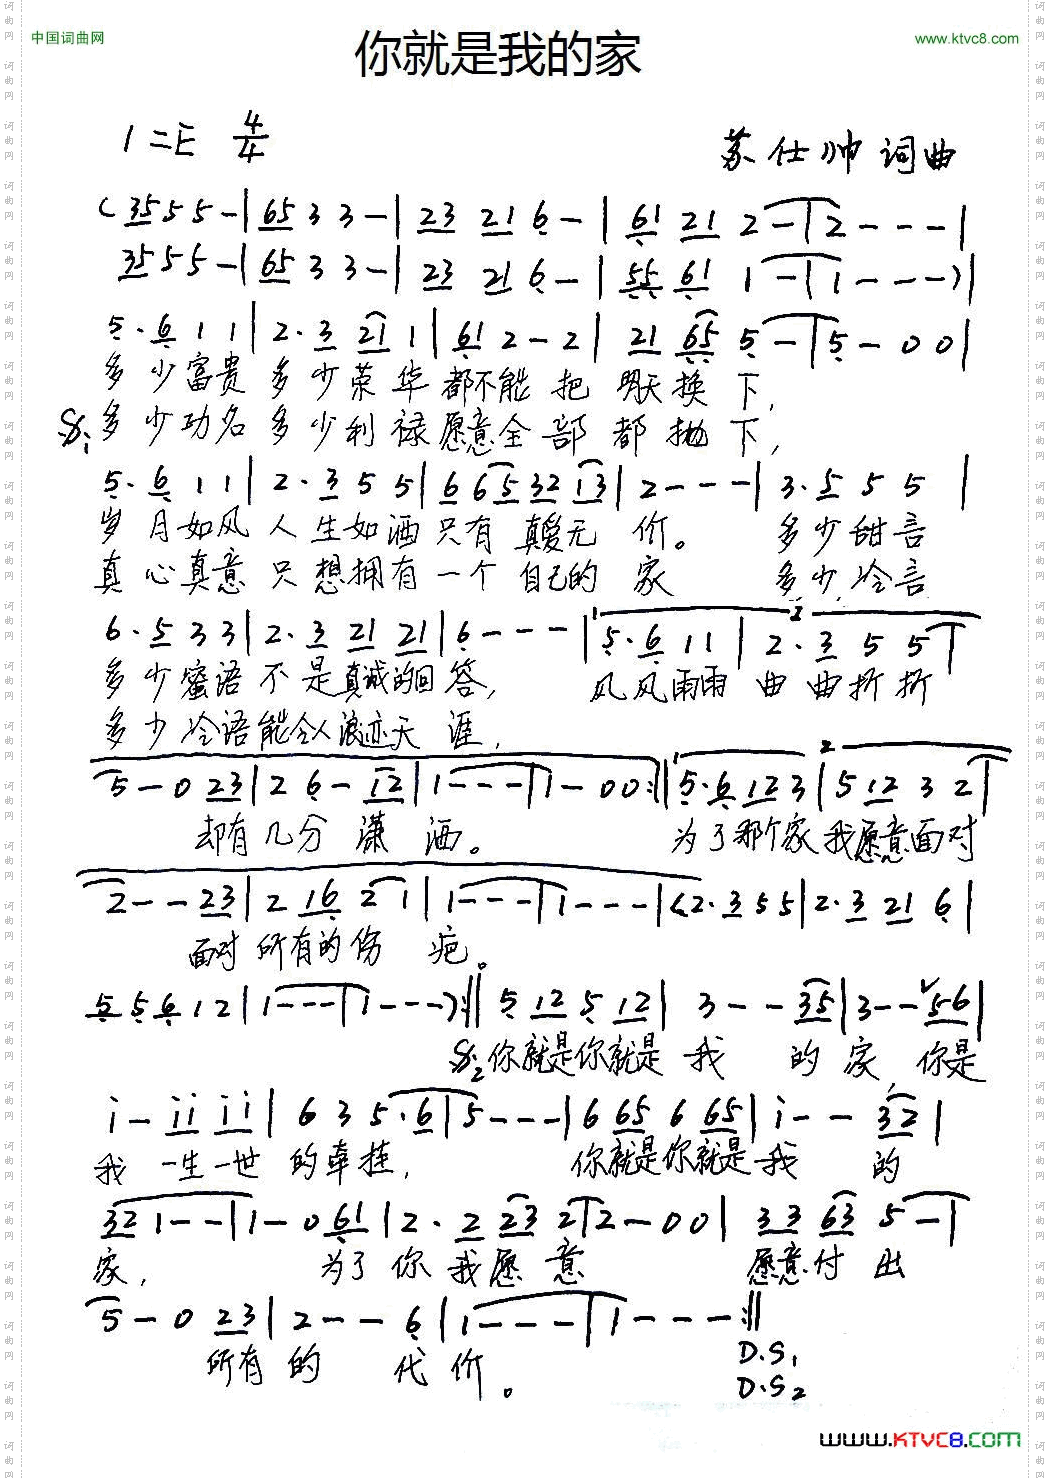 中国词曲网
www.ktvc8.com
你就是我的家
1=E 4/4
苏仕帅 词曲
( 3555-|6533-|23 21 6-|61 21 2-|2---|
3555-|6533-|23 21 6-|55 61 1-|1---)|
5·6 1 1|2·3 21 1|61 2-2|21 65 5-|5-00|
多少富贵 多少荣华 都不能把 明天换下,
S1 多少功名 多少利禄 愿意全部都抛下,
5·6 1 1|2·3 5 5|6 65 32 13|2---|3·5 5 5|
岁月如风 人生如洒 只有真爱无价。 多少甜言
真心真意 只想拥有一个自己的家 多少冷言
6·5 3 3|2·3 21 21|6---|1 5·6 1 1|2 2·3 5 5|
多少蜜语 不是真诚的回答, 风风雨雨 曲曲折折
多少冷语 能令人浪迹天涯,
5-0 23|2 6-12|1---|1-00:‖1 5·6 12 3|2 5 12 3 2|
却有几分潇洒。 为了那个家 我愿意面对
2--23|2 16 2 1|1---|1---|(2·3 5 5|2·3 21 6|
面对所有的伤疤。
5 5 6 1 2|1---|1---):‖5 12 5 12|3--35|3--56|
S2 你就是你就是我的家, 你是
i-ii ii|6 3 5·6|5---|6 65 6 65|i--32|
我一生一世的牵挂, 你就是你就是我的
32 1--|1-0 61|2·2 23 2|2-00|33 63 5-|
家, 为了你我愿意 愿意付出
5-0 23|2--6|1---|1---:‖
所有的代价。
D.S1
D.S2
www.KTVC8.com